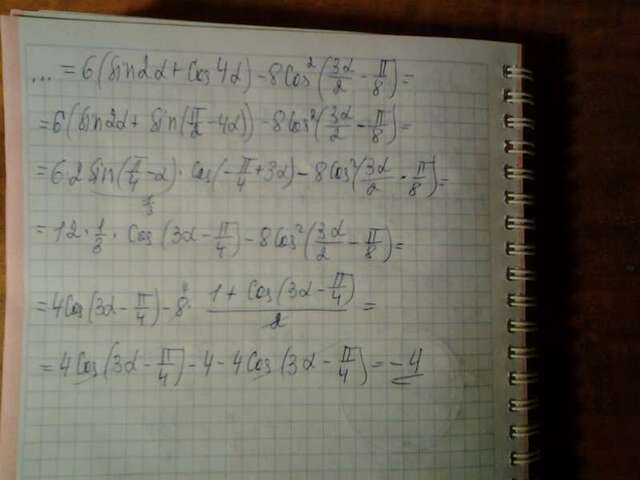 ... = 6(sin2α + cos4α) - 8cos²(3α/2 - π/8) =
= 6(sin2α + sin(π/2 - 4α)) - 8cos²(3α/2 - π/8) =
= 6·2 sin(π/4 - α) · cos(-π/4 + 3α) - 8cos²(3α/2 - π/8) =
1/3
= 12 · 1/3 · cos(3α - π/4) - 8cos²(3α/2 - π/8) =
= 4cos(3α - π/4) - 8 · (1 + cos(3α - π/4))/2 =
= 4cos(3α - π/4) - 4 - 4cos(3α - π/4) = -4